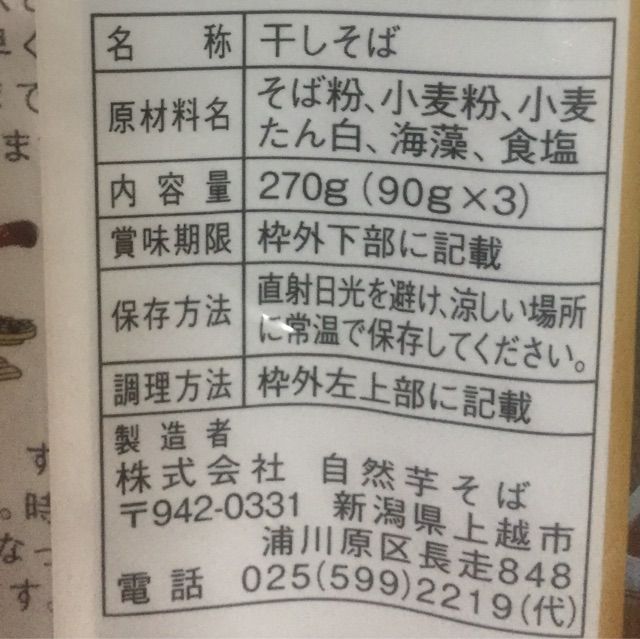 名称 干しそば
原材料名 そば粉、小麦粉、小麦
たん白、海藻、食塩
内容量 270g（90g×3）
賞味期限 枠外下部に記載
保存方法 直射日光を避け、涼しい場所
に常温で保存してください。
調理方法 枠外左上部に記載
製造者
株式会社 自然芋そば
〒942-0331 新潟県上越市
浦川原区長走848
電話 025(599)2219(代)